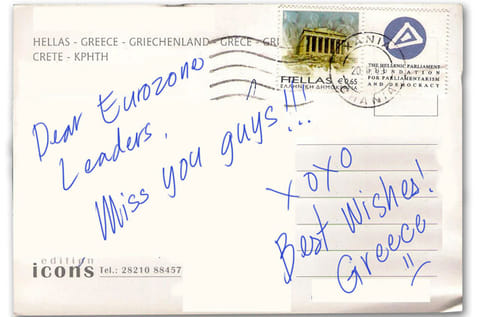 HELLAS - GREECE - GRIECHENLAND - GRECE -
CRETE - ΚΡΗΤΗ
HELLAS €0,65
ΕΛΛΗΝΙΚΗ ΔΗΜΟΚΡΑΤΙΑ
THE HELLENIC PARLIAMENT
FOUNDATION
FOR PARLIAMENTARISM
AND DEMOCRACY
Dear Eurozone
Leaders,
Miss you guys!!!...
XOXO
Best Wishes!
Greece
edition
icons Tel.: 28210 88457